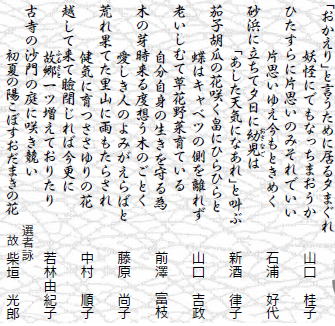 「おかえり」と言うために居る夕まぐれ
妖怪にでもなっちまおうか
山口 桂子
ひたすらに片思いのみそれでいい
片思いゆえ今もときめく
石浦 好代
砂浜に立ちて夕日に幼児は
「あした天気になあれ」と叫ぶ
新酒 律子
茄子胡瓜の花咲く畠にひらひらと
蝶はキャベツの側を離れず
山口 吉政
老いしむて草花野菜育ている
自分自身の生きを守る為
前澤 富枝
木の芽時来る度想う木のごとく
愛しき人のよみがえらばと
藤原 尚子
荒れ果てた里山に雨もたらされ
健気に育つささゆりの花
中村 順子
越して来て瞼閉じれば今更に
故郷一つ増えておりたり
若林由紀子
古寺の沙門の庭に咲き競い
初夏の陽こぼすおだまきの花
選者詠
故 柴垣 光郎